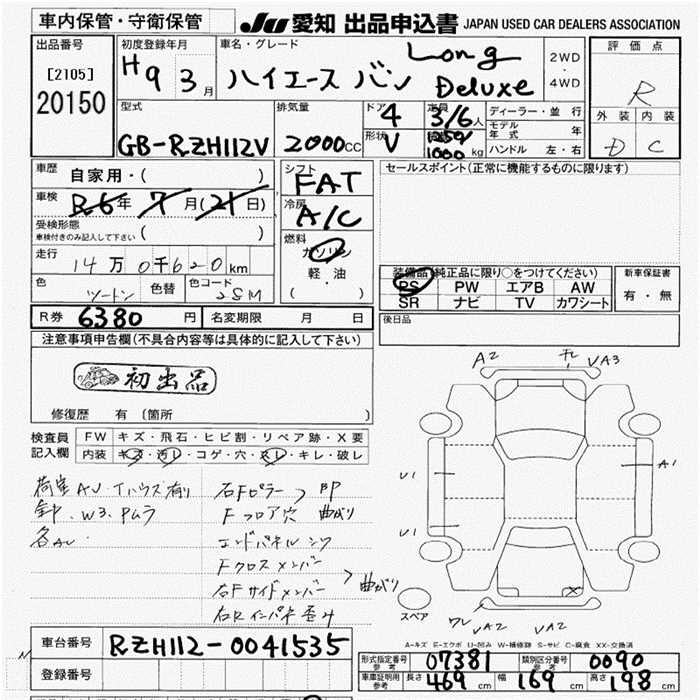 車内保管・守衛保管
JU 愛知 出品申込書 JAPAN USED CAR DEALERS ASSOCIATION
出品番号
[2105]
20150
初度登録年月
H9 3月
車名・グレード
ハイエース バン Long Deluxe
2WD
・
4WD
評価点
R
外装 内装
D C
型式
GB-RZH112V
排気量
2000cc
ドア
4
定員
3/6人
形状
V
1250/1000kg
ディーラー・並行
モデル年式 年
ハンドル 左・右
車歴
自家用・( )
車検
R6年 7月(21日)
受検形態
車検付きのみ記入して下さい ( )
走行
14万0千620km
色
ツートン
色替
色コード
2SM
シフト
FAT
冷房
A/C
燃料
ガソリン
軽・油
( )
セールスポイント(正常に機能するものに限ります)
装備品(純正品に限り○をつけてください)
PS PW エアB AW
SR ナビ TV カワシート
新車保証書
有・無
R券 6380円
名変期限 月 日
後日品
注意事項申告欄(不具合内容等は具体的に記入して下さい)
初出品
修復歴 有 〔箇所 〕
検査員
記入欄
FW キズ・飛石・ヒビ割・リペア跡・X要
内装 キズ・汚レ・コゲ・穴・スレ・キレ・破レ
荷室AU・Tハウス有り
W3、Pムラ
各AU・
右Fピラー
Fフロア穴 曲がり
エンドパネルシワ
Fクロスメンバー
右Fサイドメンバー
曲がり
右Rインパネ歪み
A2
VA3
U1
A1
U1
X
スペア
ワレ
VA2 VA2
A-キズ E-エクボ U-凹み W-補修跡 S-サビ C-腐食 XX-交換済
車台番号 RZH112-0041535
登録番号
形式指定番号
参考
07381
類別区分番号
参考
0090
車庫証明用
参考
長さ 469cm 幅 169cm 高さ 198cm